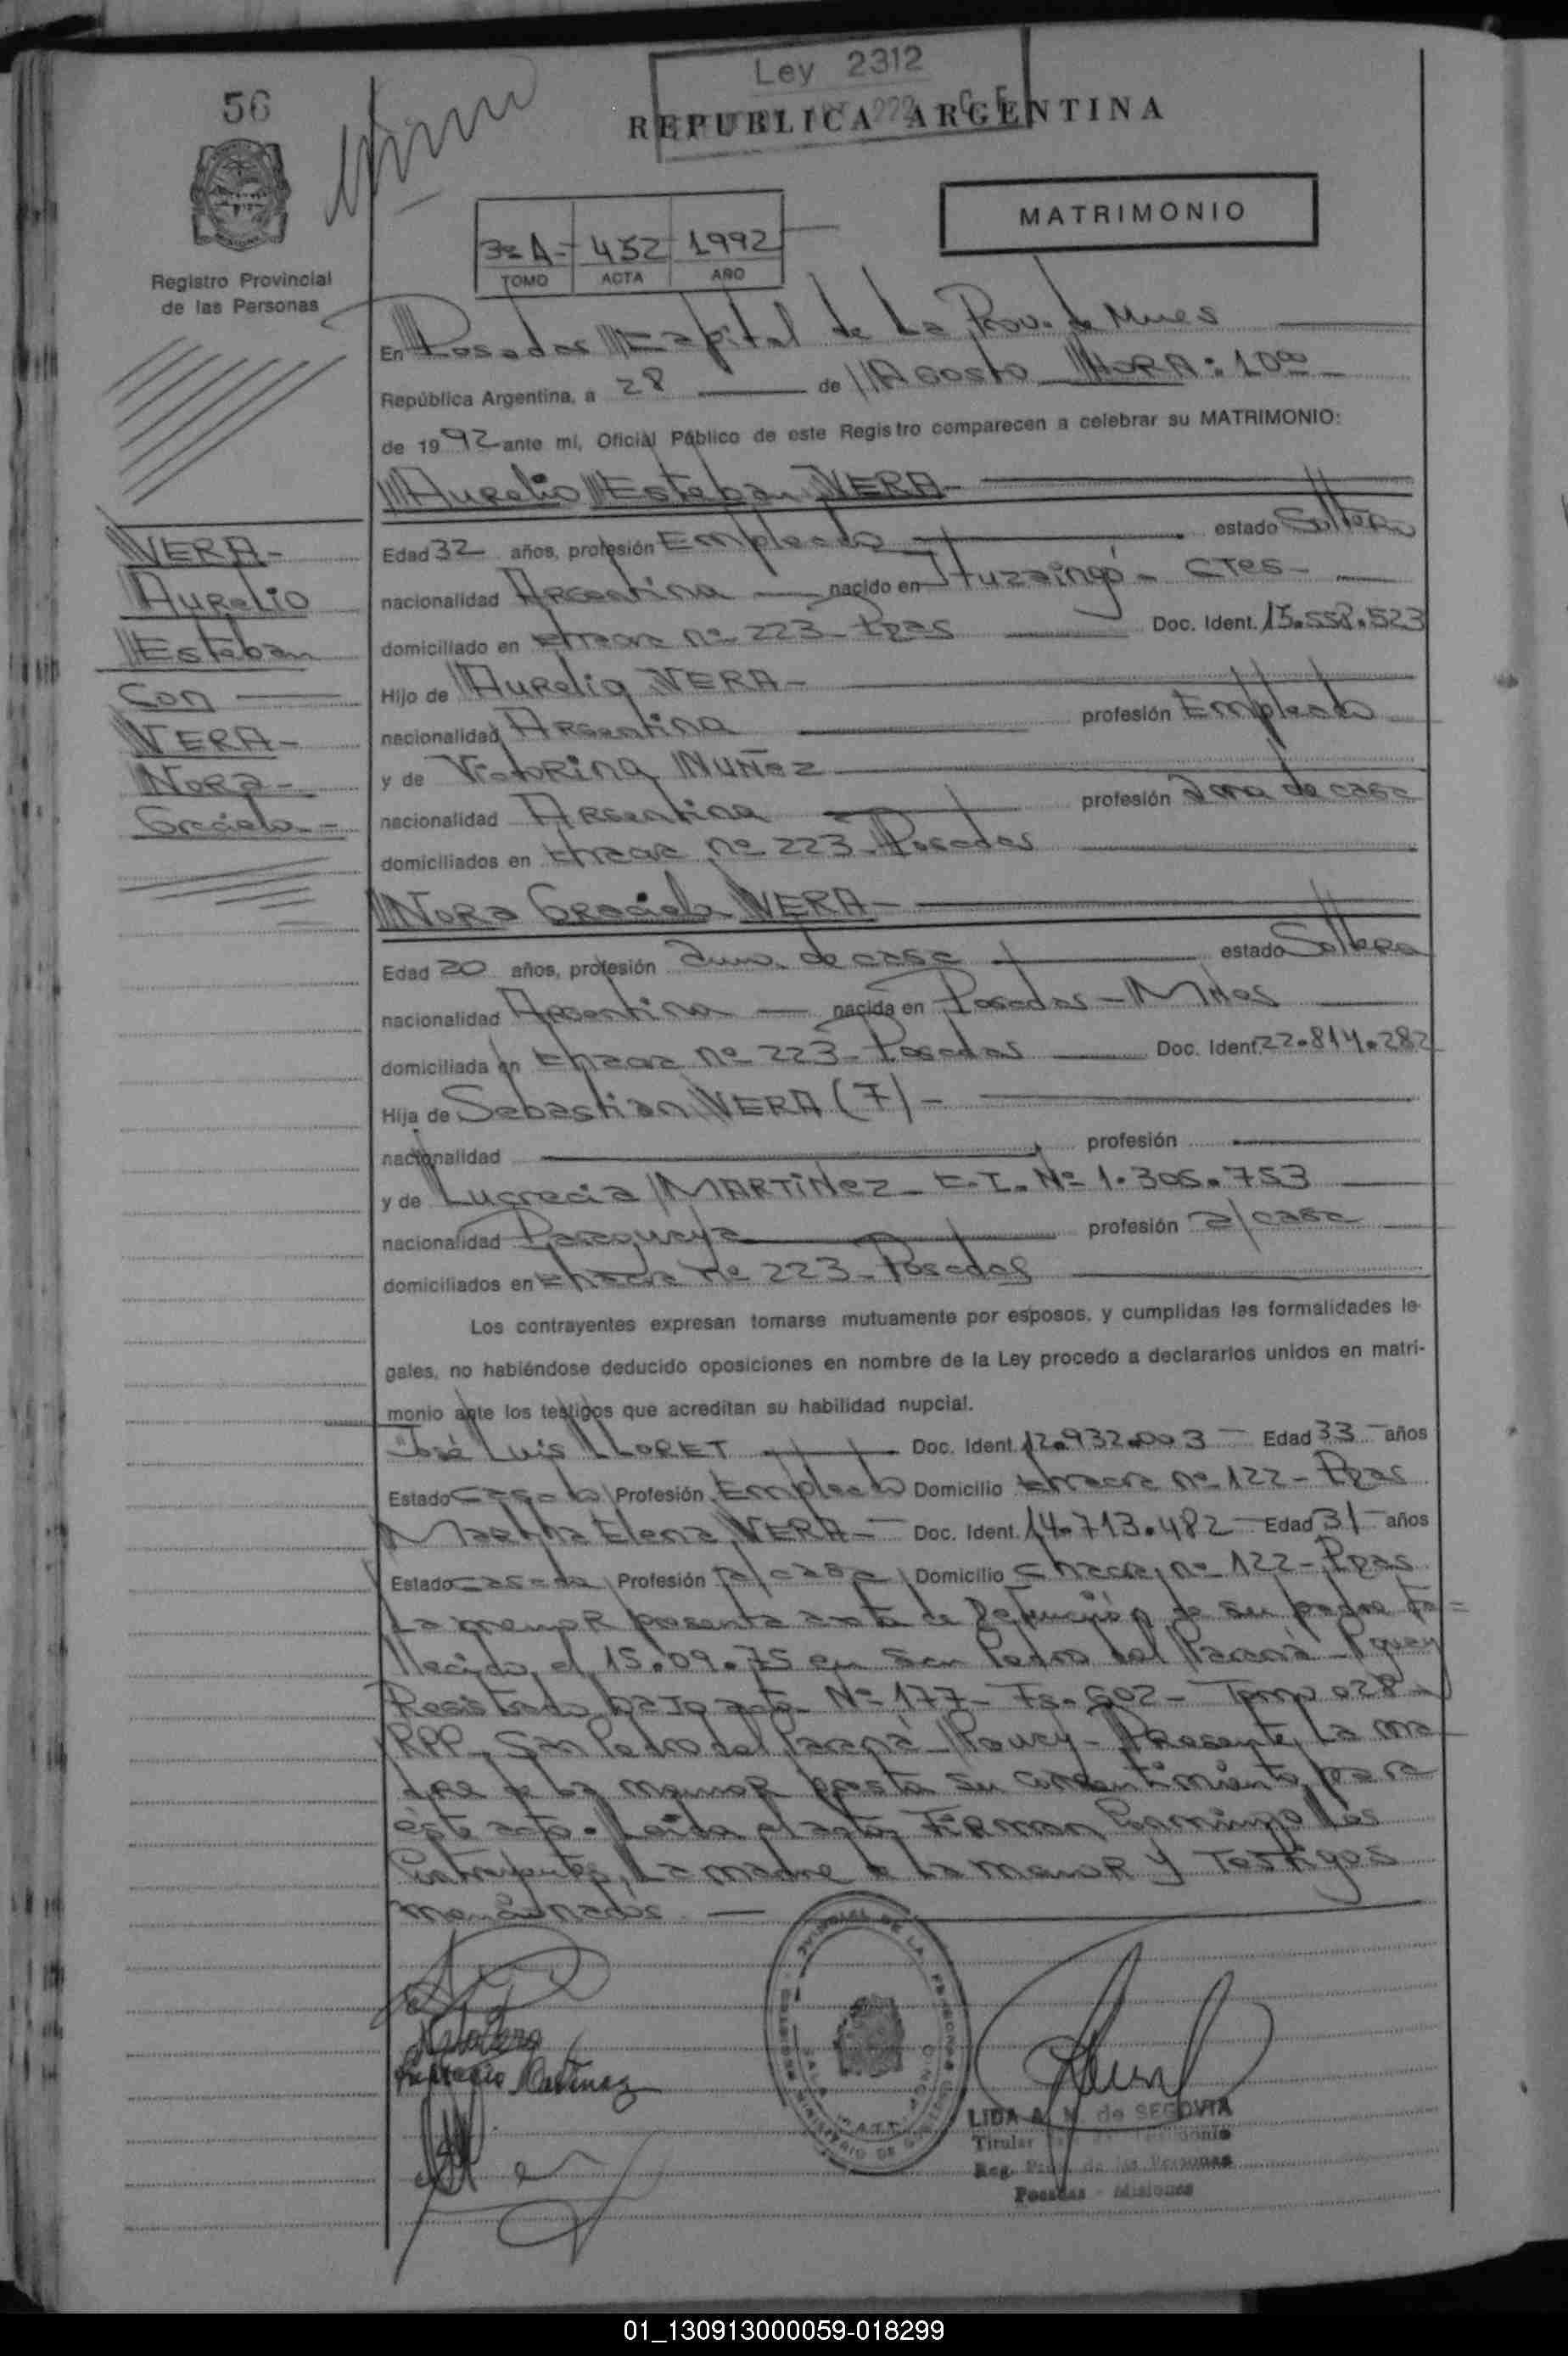 56
Ley 2312
REPUBLICA ARGENTINA
MATRIMONIO
3º A - 452 1992
TOMO ACTA AÑO
Registro Provincial
de las Personas
En Posadas Capital de La Prov. de Mnes
República Argentina, a 28 de Agosto HORA: 10⁰⁰
de 1992 ante mí, Oficial Público de este Registro comparecen a celebrar su MATRIMONIO:
Aurelio Esteban VERA-
VERA-
Aurelio
Esteban
Con
VERA-
Nora-
Graciela-
Edad 32 años, profesión Empleado estado Soltero
nacionalidad Argentina nacido en Ituzaingó - Ctes-
domiciliado en Chacra nº 223- Pdas Doc. Ident. 13.558.523
Hijo de Aurelio VERA-
nacionalidad Argentina profesión Empleado
y de Victorina Nuñez
nacionalidad Argentina profesión ama de casa
domiciliados en Chacra nº 223- Posadas
Nora Graciela VERA-
Edad 20 años, profesión ama de casa estado Soltera
nacionalidad Argentina nacida en Posadas - Mnes
domiciliada en Chacra nº 223- Posadas Doc. Ident. 22.814.282
Hija de Sebastian VERA (7) -
nacionalidad profesión
y de Lucrecia MARTiNez - C.I. Nº 1.305.753
nacionalidad Paraguaya profesión a/casa
domiciliados en Chacra nº 223- Posadas
Los contrayentes expresan tomarse mutuamente por esposos, y cumplidas las formalidades le-
gales, no habiéndose deducido oposiciones en nombre de la Ley procedo a declararlos unidos en matri-
monio ante los testigos que acreditan su habilidad nupcial.
José Luis LLORET Doc. Ident. 12.932.003 Edad 33 años
Estado Casado Profesión Empleado Domicilio Chacra nº 122- Pdas
Martha Elena VERA- Doc. Ident. 14.713.482 Edad 31 años
Estado Casada Profesión a/casa Domicilio Chacra nº 122- Pdas
La menor presenta acta de Defunción de su padre fa=
llecido el 15.09.75 en San Pedro del Paraná - Pguay
Registrado bajo acta Nº 177- Fs. 602- Tomo 028-
RPP- San Pedro del Paraná - Pguay- Presente La ma
dre de la menor presta su consentimiento para
éste acto. Leida el acta, Firman Conmigo los
Contrayentes, La madre de La menor y Testigos
mencionados.
Lucrecia Martinez
LIDA A. M. de SEGOVIA
Titular
Reg. Prov. de las Personas
Posadas - Misiones
01_130913000059-018299